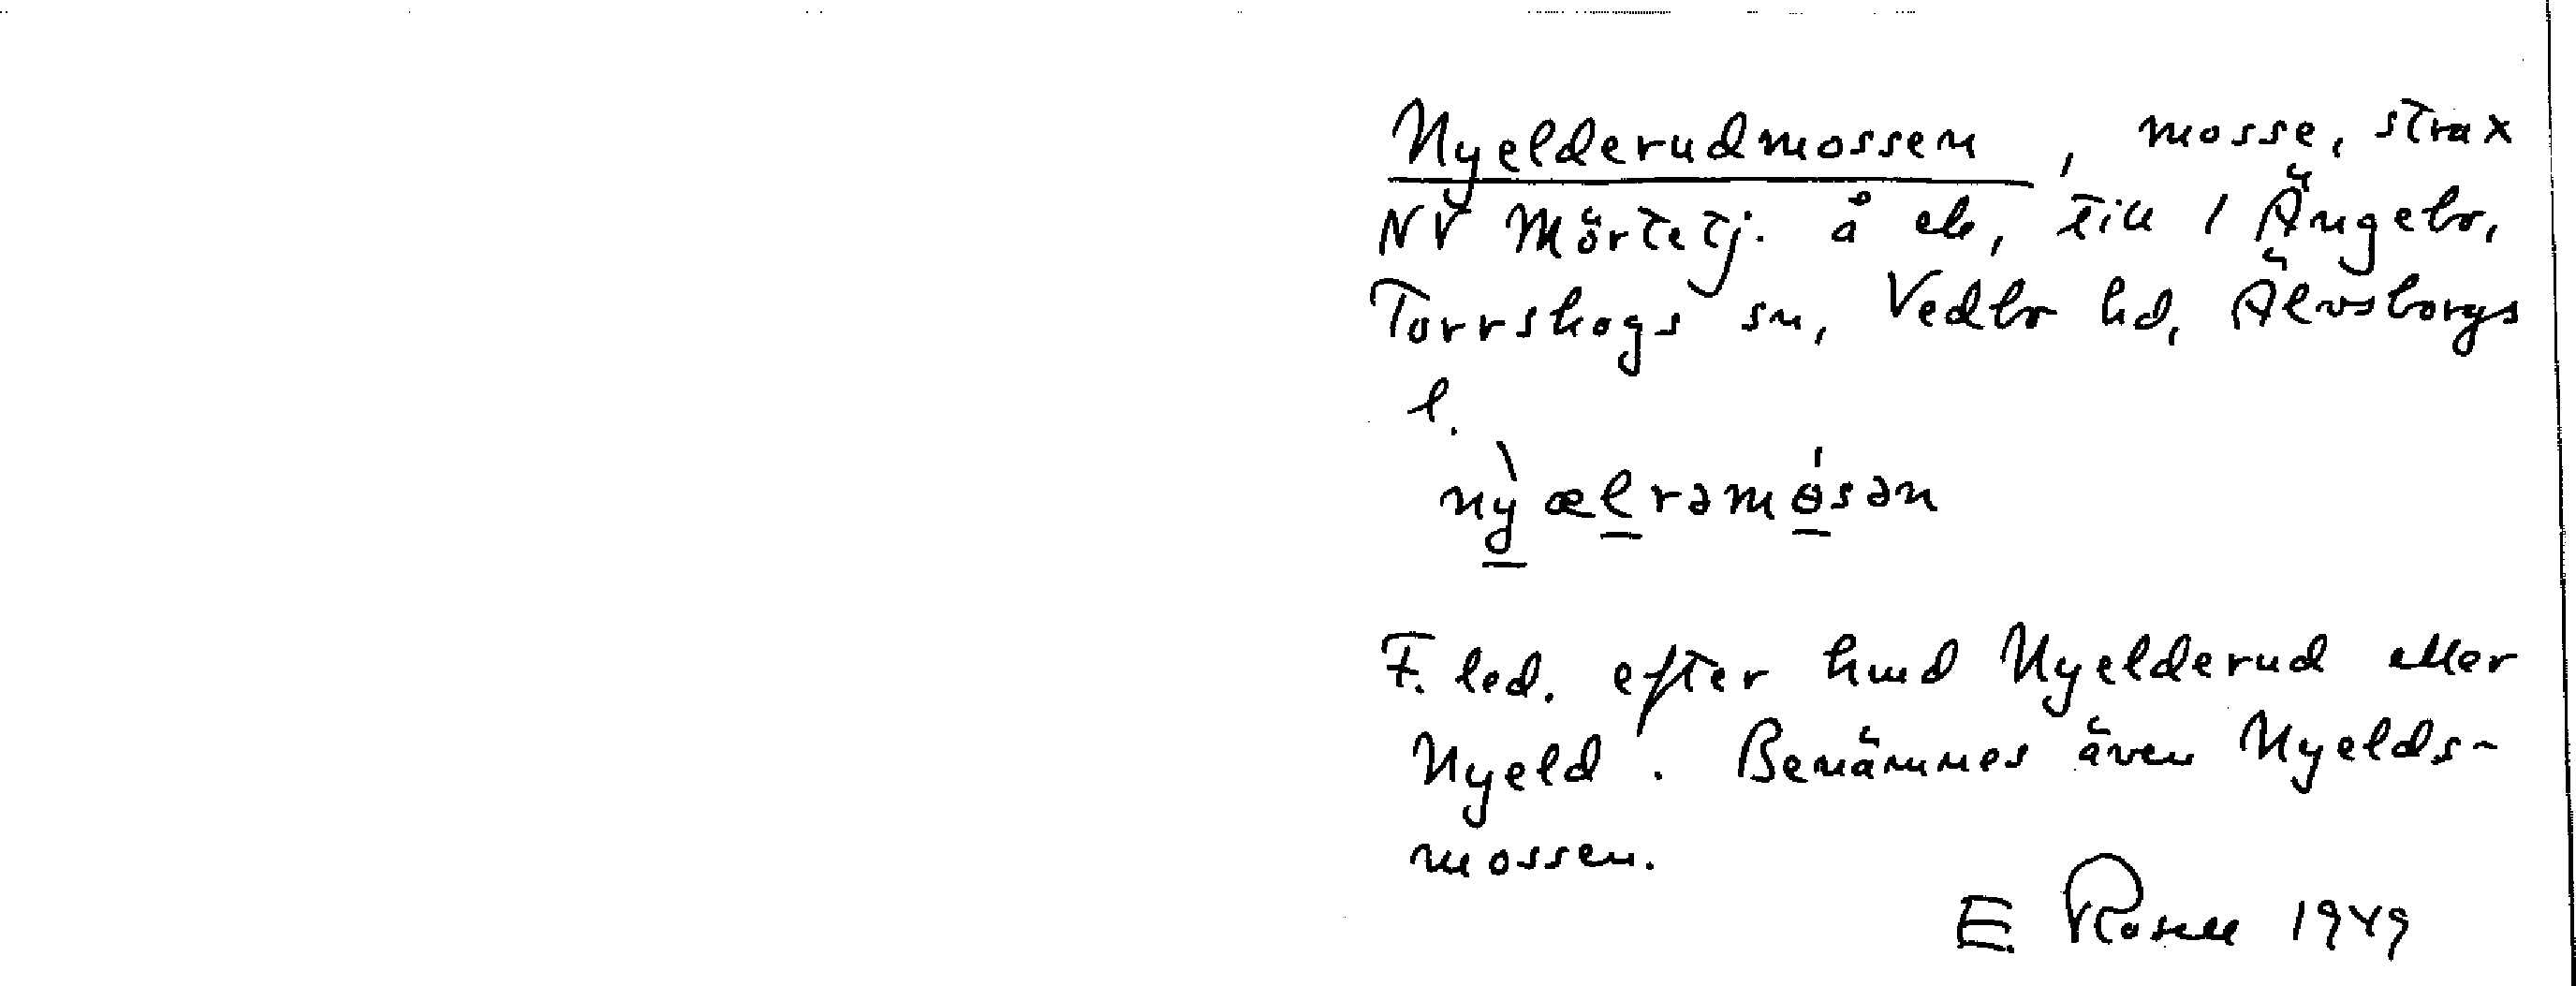 Nyelderudmossen, mosse, strax
NV Mörtetj. å ek, till 1 Ängebo,
Torrskogs sn, Vedbo hd, Älvsborgs
l.
nỳælrəmɵ́sən
F. led. efter hmd Nyelderud eller
Nyeld. Benämnes även Nyelds-
mossen.
E. Rosell 1949